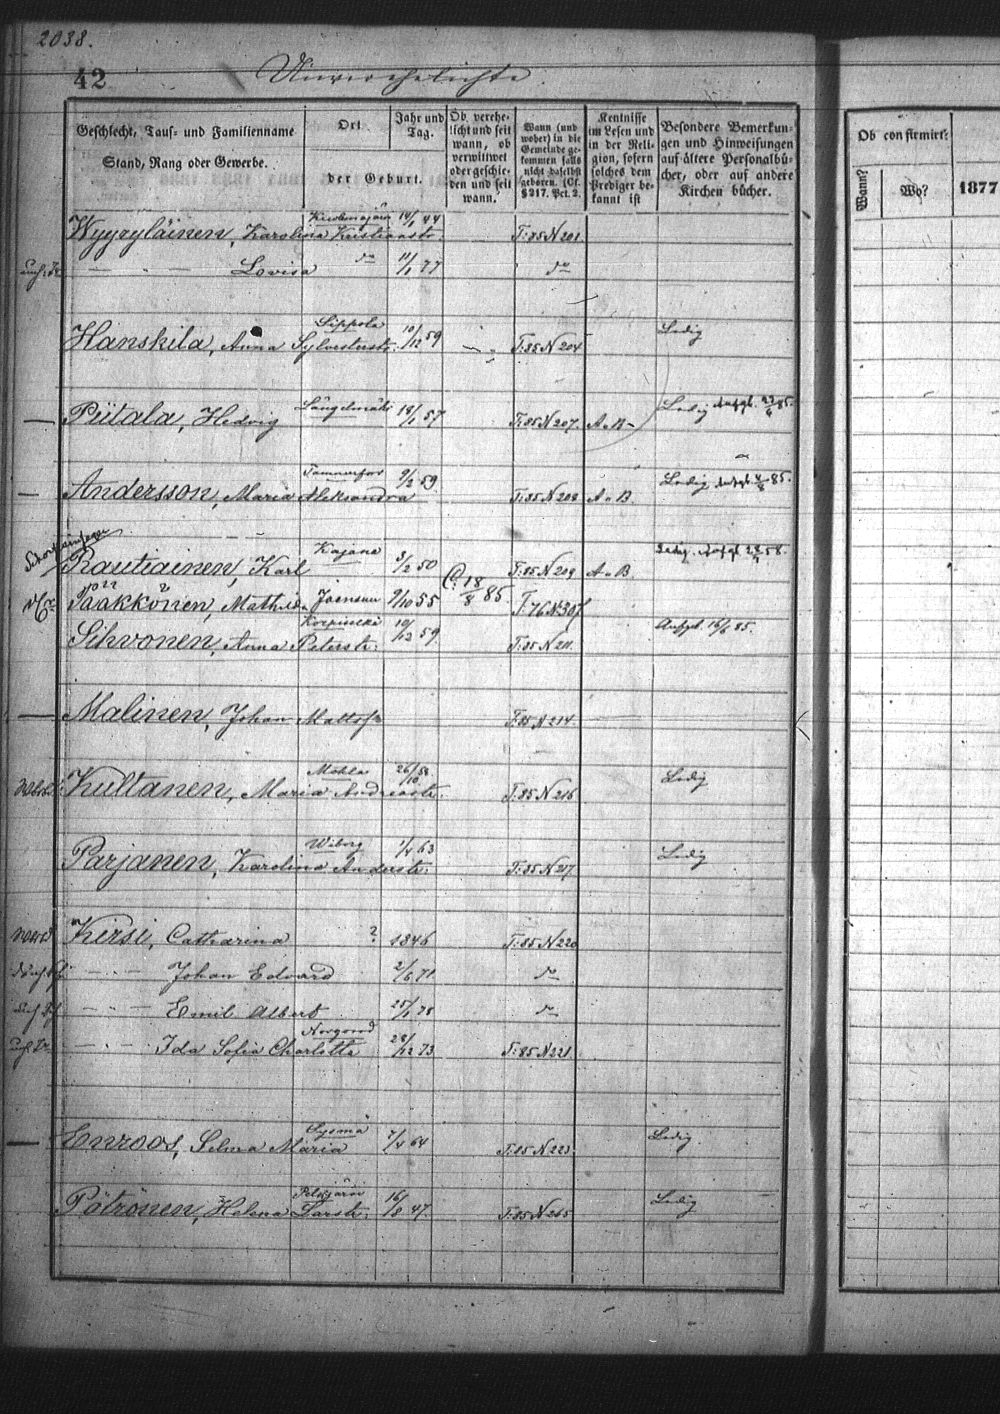 2038.
42
Unverehelichte
Geschlecht, Tauf- und Familienname
Stand, Rang oder Gewerbe.
Ort
der Geburt.
Jahr und
Tag.
Ob verehe-
licht und seit
wann, ob
verwittwet
oder geschie-
den und seit
wann.
Wann (und
woher) in die
Gemeinde ge-
kommen falls
nicht daselbst
geboren. (Cf.
§ 217. Pct. 2.
Kentnisse
im Lesen und
in der Reli-
gion, sofern
solches dem
Prediger be-
kannt ist
Besondere Bemerkun-
gen und Hinweisungen
auf ältere Personalbü-
cher, oder auf andere
Kirchen bücher.
Ob confirmirt?
Wann?
Wo?
1877
Wyyryläinen, Karolina Kristianstr. 14/1 44 T:85 N 201.
— — — Lovisa do 11/1 77 do
Hanskila, Anna Sylvesterstr. Sippola 10/12 59 T:85 N 204 Ledig
Piitala, Hedvig Längelmäki 18/1 57 T:85 N 207. A. B. Ledig Aufgb. 85.
Andersson, Maria Aleksandra Tammerfor 9/2 59 T:85 N 208 A. B. Ledig Aufgb. 85.
Rautiainen, Karl Kajana 3/2 50 T:85 N 209 A. B. Ledig.
Pääkkönen, Mathilda Joensuu 9/10 55 C: 18/8 85. T:76 N:307
Sihvonen, Anna Peterstr: 10/12 59. T:85 N 211. Aufgb. 16/6 85.
Malinen, Johan Mattsfn T:85 N 214.
Kultanen, Maria Andreastr. Mohla 26/10 T:85 N 216 Ledig
Parjanen, Karolina Anderstr. Wiborg 1/4 63 T:85 N 217. Ledig
Kirsi, Catharina ? 1846 T:85 N 220
— — Johan Edvard 2/6 71 do
— — Emil Albert 25/1 78 do
— — Ida Sofia Charlotta Novgorod 28/12 73 T:85 N 221.
Enroos, Selma Maria Sysmä 7/4 64 T:85 N 223. Ledig
Pötrönen, Helena Larstr. Pelkjärvi 16/8 47. T:85 N 265 Ledig